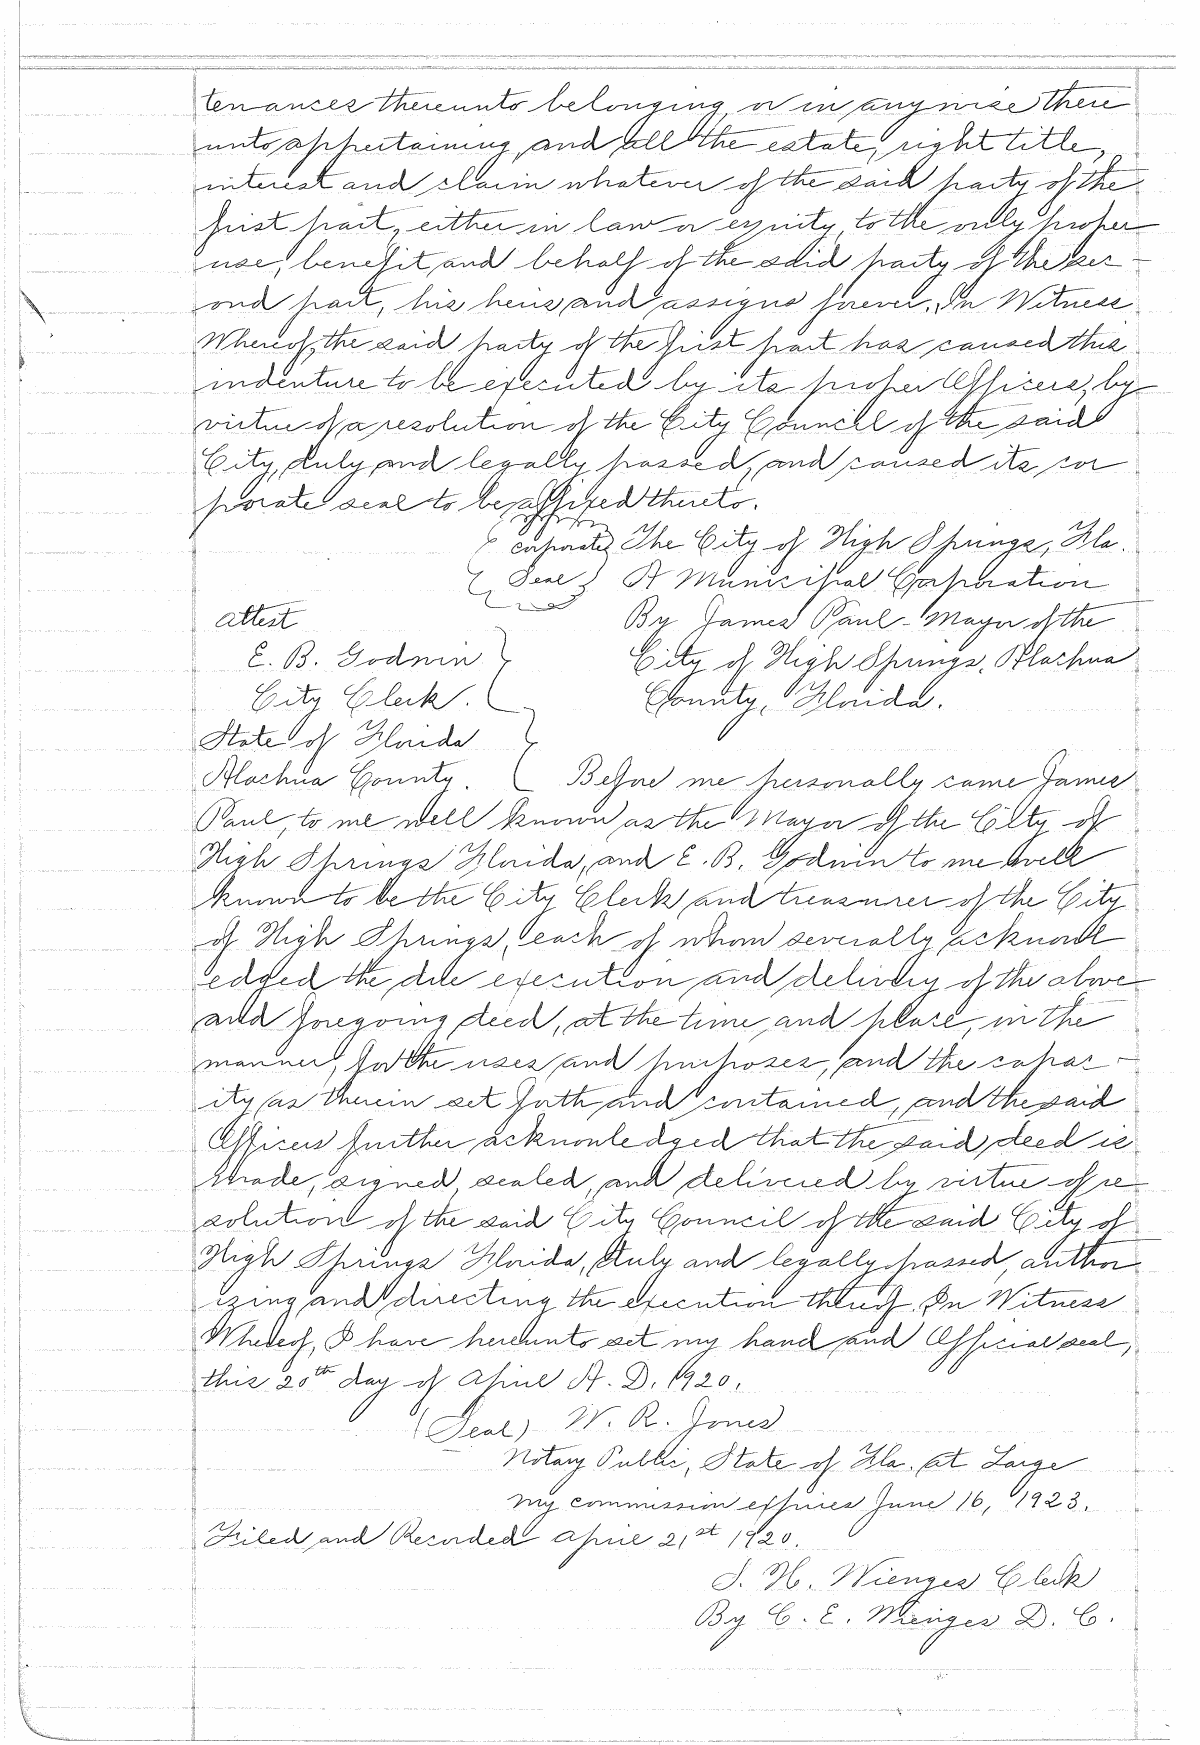 tenances thereunto belonging, or in anywise there
unto appertaining, and all the estate, right title,
interest and claim whatever of the said party of the
first part, either in law or equity, to the only proper
use, benefit, and behalf of the said party of the sec-
ond part, his heirs and assigns forever. In Witness
Whereof, the said party of the first part has caused this
indenture to be executed by its proper Officers, by
virtue of a resolution of the City Council of the said
City, duly and legally passed, and caused its cor
porate seal to be affixed thereto.
corporate The City of High Springs, Fla.
Seal A Municipal Corporation
attest By James Paul - Mayor of the
E. B. Godwin City of High Springs, Alachua
City Clerk. County, Florida.
State of Florida
Alachua County. Before me personally came James
Paul, to me well known as the Mayor of the City of
High Springs Florida, and E. B. Godwin to me well
known to be the City Clerk and treasurer of the City
of High Springs, each of whom severally acknowl
edged the due execution and delivery of the above
and foregoing deed, at the time and place, in the
manner, for the uses and purposes, and the capac-
ity as therein set forth and contained, and the said
Officers further acknowledged that the said deed is
made, signed, sealed, and delivered by virtue of re
solution of the said City Council of the said City of
High Springs Florida, duly and legally passed, author
izing and directing the execution thereof. In Witness
Whereof, I have hereunto set my hand and Official seal,
this 20th day of April A. D. 1920.
(Seal) W. R. Jones
Notary Public, State of Fla. at Large
my commission expires June 16, 1923.
Filed and Recorded April 21st 1920.
S. H. Wienges Clerk
By C. E. Wienges D. C.